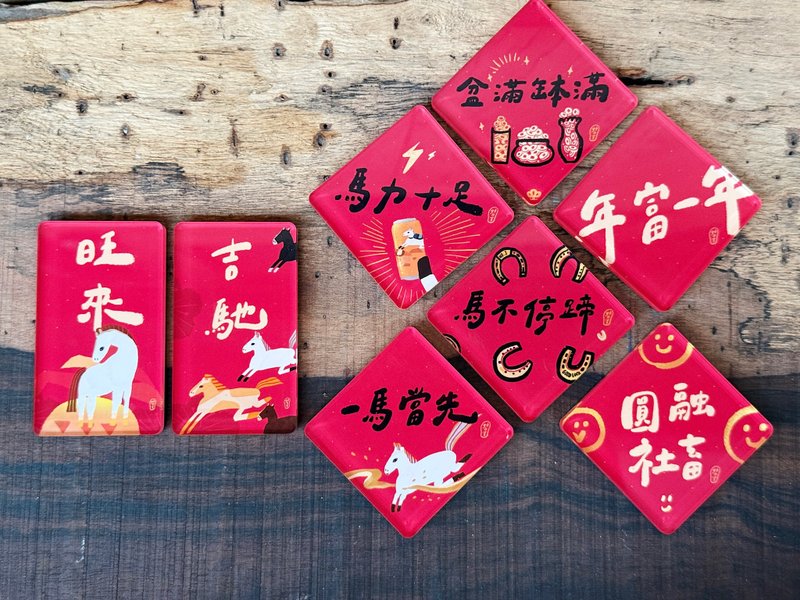 旺來
吉馳
盆滿缽滿
馬力十足
年富一年
馬不停蹄
一馬當先
圓融
社畜